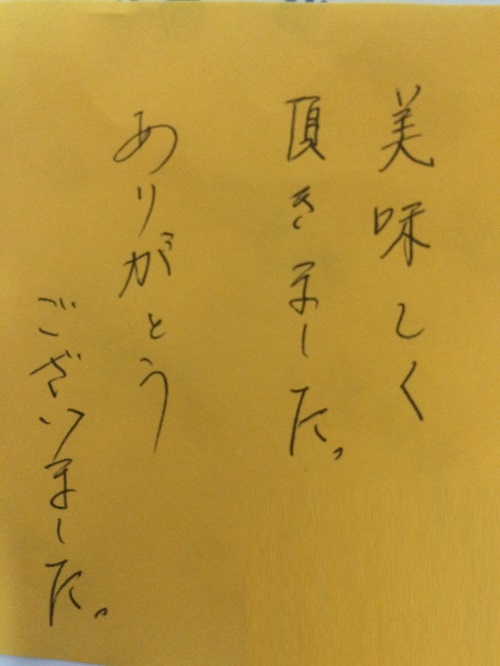 美味しく
頂きました。
ありがとう
ございました。